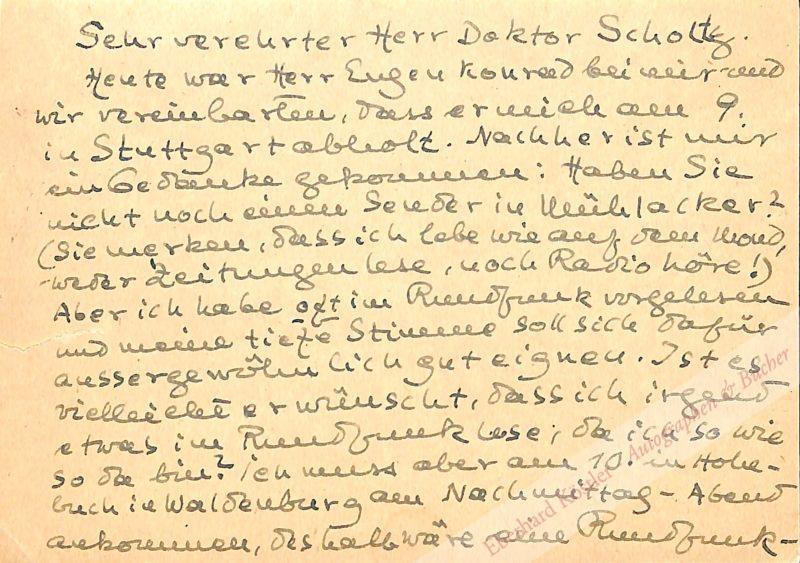 Sehr verehrter Herr Doktor Scholtz.
Heute war Herr Eugen Konrad bei mir und
wir vereinbarten, dass er mich am 9.
in Stuttgart abholt. Nachher ist mir
ein Gedanke gekommen: Haben Sie
nicht noch einen Sender in Mühlacker?
(Sie merken, dass ich lebe wie auf dem Mond,
weder Zeitungen lese, noch Radio höre!)
Aber ich habe oft im Rundfunk vorgelesen
und meine tiefe Stimme soll sich dafür
aussergewöhnlich gut eignen. Ist es
vielleicht erwünscht, dass ich irgend
etwas im Rundfunk lese, da ich so wie
so da bin? Ich muss aber am 10. in Hohe-
buch in Waldenburg am Nachmittag - Abend
ankommen, deshalb wäre eine Rundfunk-
Eberhard Köstler Autographen & Bücher